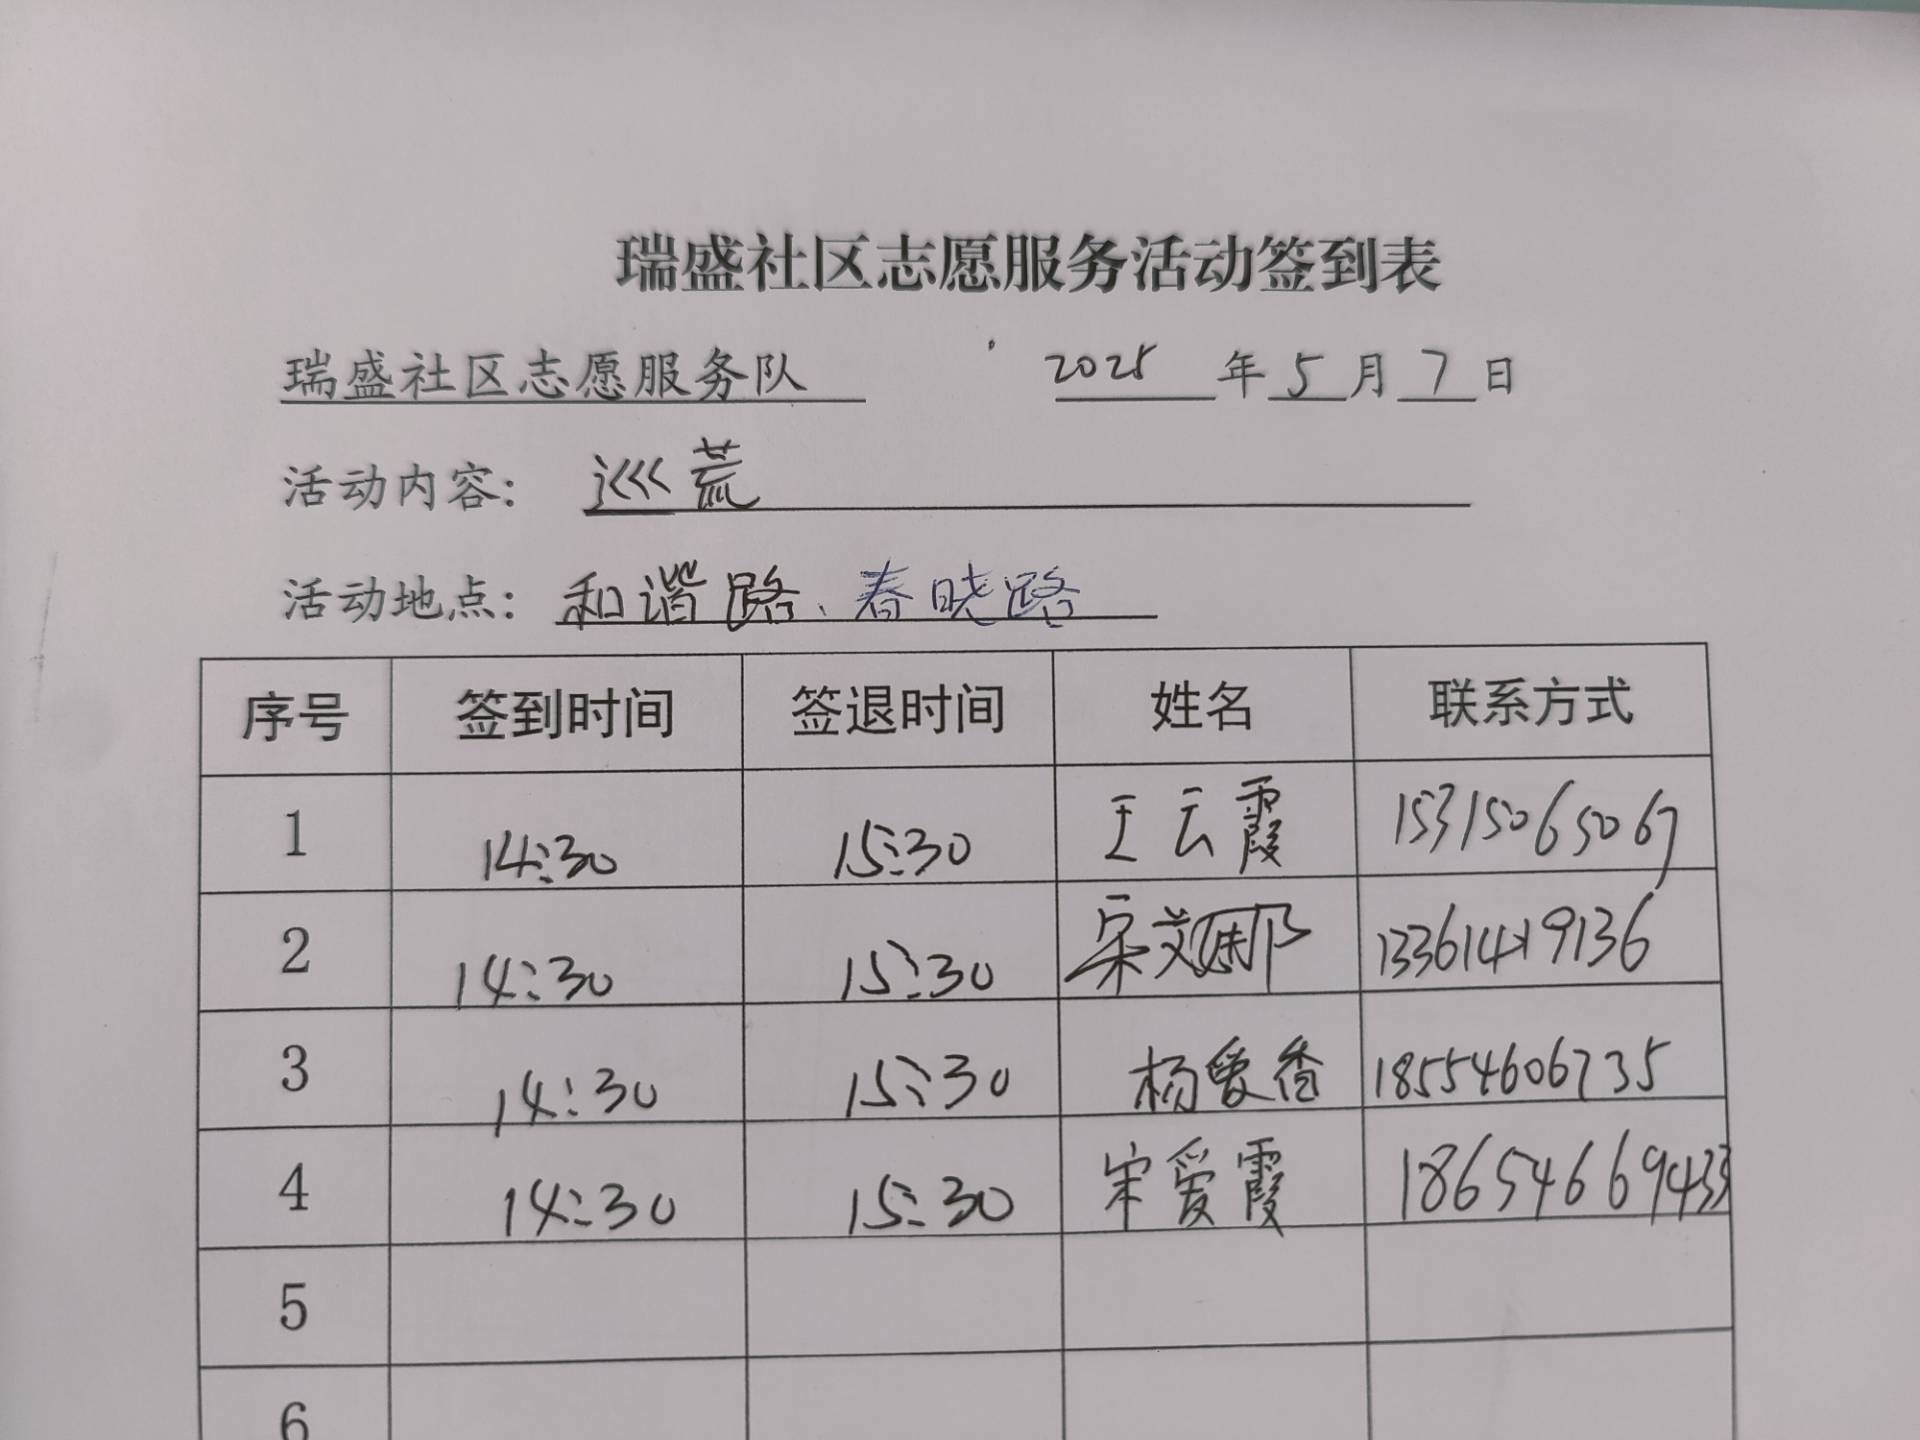 瑞盛社区志愿服务活动签到表
瑞盛社区志愿服务队 2025 年 5 月 7 日
活动内容: 巡荒
活动地点: 和谐路、春晓路
序号 签到时间 签退时间 姓名 联系方式
1 14:30 15:30 王云霞 15315065067
2 14:30 15:30 宋 13361419136
3 14:30 15:30 杨爱香 18554606735
4 14:30 15:30 宋爱霞 18654669433
5
6